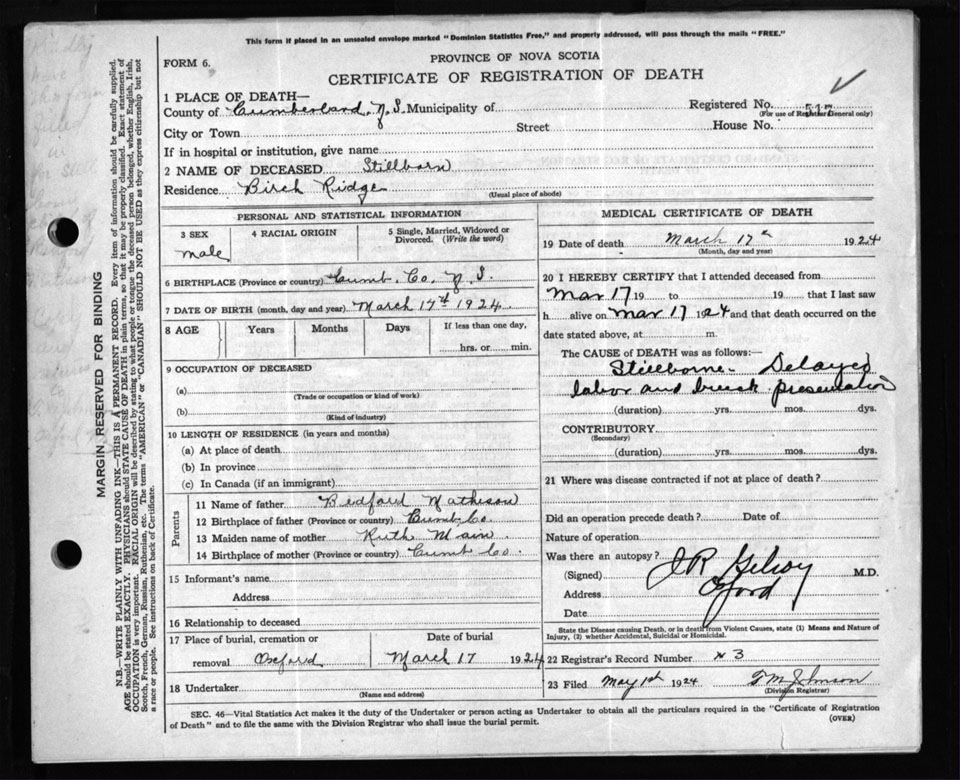 This form if placed in an unsealed envelope marked "Dominion Statistics Free," and properly addressed, will pass through the mails "FREE."
FORM 6.
PROVINCE OF NOVA SCOTIA
CERTIFICATE OF REGISTRATION OF DEATH
1 PLACE OF DEATH—
County of Cumberland, N.S. Municipality of
Registered No. 517
(For use of Registrar General only)
City or Town Street House No.
If in hospital or institution, give name
2 NAME OF DECEASED Stillborn
Residence Birch Ridge
(Usual place of abode)
PERSONAL AND STATISTICAL INFORMATION
3 SEX
male
4 RACIAL ORIGIN
5 Single, Married, Widowed or
Divorced. (Write the word)
6 BIRTHPLACE (Province or country) Cumb. Co. N.S.
7 DATE OF BIRTH (month, day and year) March 17th 1924
8 AGE Years Months Days If less than one day,
hrs. or min.
9 OCCUPATION OF DECEASED
(a)
(Trade or occupation or kind of work)
(b)
(Kind of industry)
10 LENGTH OF RESIDENCE (in years and months)
(a) At place of death
(b) In province
(c) In Canada (if an immigrant)
Parents
11 Name of father Bedford Matheson
12 Birthplace of father (Province or country) Cumb. Co.
13 Maiden name of mother Ruth Main
14 Birthplace of mother (Province or country) Cumb Co.
15 Informant's name
Address
16 Relationship to deceased
17 Place of burial, cremation or
removal Oxford
Date of burial
March 17 1924
18 Undertaker
(Name and address)
MEDICAL CERTIFICATE OF DEATH
19 Date of death March 17th 1924
(Month, day and year)
20 I HEREBY CERTIFY that I attended deceased from
Mar 17 19 to 19 that I last saw
h alive on Mar 17 1924 and that death occurred on the
date stated above, at m.
The CAUSE OF DEATH was as follows:
Stillborne. Delayed
labor and breech presentation
(duration) yrs. mos. dys.
CONTRIBUTORY
(Secondary)
(duration) yrs. mos. dys.
21 Where was disease contracted if not at place of death?
Did an operation precede death? Date of
Nature of operation
Was there an autopsy?
(Signed) J R Gilroy M.D.
Address Oxford
Date
State the Disease causing Death, or in death from Violent Causes, state (1) Means and Nature of
Injury, (2) whether Accidental, Suicidal or Homicidal.
22 Registrar's Record Number 3
23 Filed May 1st 1924 Johnson
(Division Registrar)
SEC. 46—Vital Statistics Act makes it the duty of the Undertaker or person acting as Undertaker to obtain all the particulars required in the "Certificate of Registration
of Death" and to file the same with the Division Registrar who shall issue the burial permit.
(OVER)
MARGIN RESERVED FOR BINDING
N.B.—WRITE PLAINLY WITH UNFADING INK—THIS IS A PERMANENT RECORD. Every item of information should be carefully supplied.
AGE should be stated EXACTLY. PHYSICIANS should STATE CAUSE OF DEATH in plain terms, so that it may be properly classified. Exact statement of
OCCUPATION is very important. RACIAL ORIGIN will be described by stating to what people or tongue the deceased person belonged, whether English, Irish,
Scotch, French, German, Russian, Ruthenian, etc. The terms "AMERICAN" or "CANADIAN" SHOULD NOT BE USED as they express citizenship but not
a race or people. See instructions on back of Certificate.